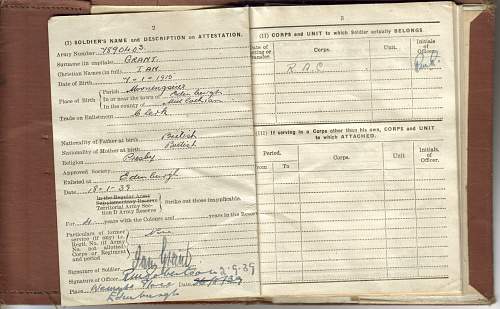 2
(I) SOLDIER'S NAME and DESCRIPTION on ATTESTATION.
Army Number 7890403
Surname (in capitals) GRANT.
Christian Names (in full) IAN.
Date of Birth 7-1-1915
Place of Birth
Parish
In or near the town of Edinburgh
In the county of Mid Lothian
Trade on Enlistment Clerk
Nationality of Father at birth British
Nationality of Mother at birth British
Religion Presby
Approved Society
Enlisted at Edinburgh
Date 18-1-39
In the Regular Army
Supplementary Reserve
Territorial Army
Section D Army Reserve
Strike out those inapplicable.
For 4 years with the Colours and years in the Reserve
Particulars of former
service (if any) i.e.
Regtl. No. (if Army
No. not allotted)
Corps or Regiment
and period
None
Signature of Soldier Ian Grant
Signature of Officer 2.9.39
Place Date
Edinburgh
3
(II) CORPS and UNIT to which Soldier actually BELONGS.
Date of
Joining or
Transfer.
Corps.
Unit.
Initials
of
Officer.
R.A.C.
(III) If serving in a Corps other than his own, CORPS and UNIT
to which ATTACHED.
Period.
From
To
Corps.
Unit
Initials of
Officer.